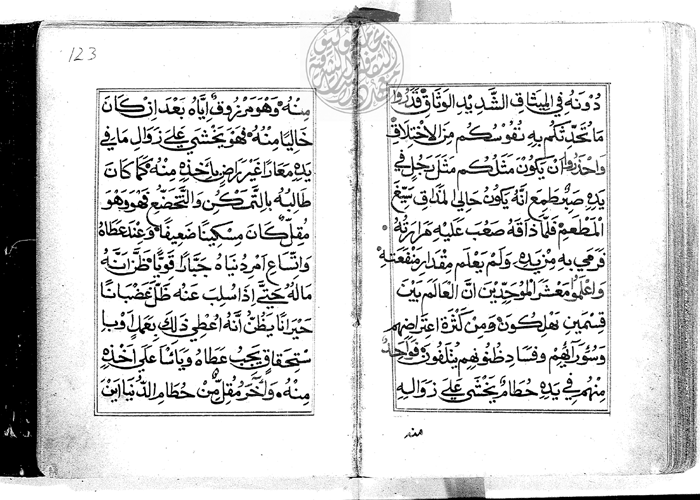 دونه في الميثاق الشديد الوثاق قدروا
ما تحدثكم به نفوسكم من الاختلاق
واحذروا ان يكون مثلكم مثل رجل في
يده صبر طمع انه يكون حالي المذاق سيّغ
المطعم فلما ذاقه صعب عليه مرارته
ورمى به من يده ولم يعلم مقدار منفعته
واعلموا معشر الموحدين ان العالم بين
قسمين يهلكون ومن كثرة اعتراضهم
وسوء رأيهم وفساد ظنونهم يتلفون فواحد
منهم في يده حطام يخشى على زواله
منه
123
منه وهو مرزوق اياه بعد ان كان
خاليا منه فهو يخشى على زوال ما في
يده معارا غير راض باخذه منه كما كان
طالبه بالتمسكن والتخضع فهو وهو
مقل كان مسكينا ضعيفا وعند عطاه
واتساع امر دنياه جبارا قويا ظن انه
ماله حتى إذا سلب عنه ظل غضبانا
حيرانا يظن أنه اعطي ذلك بعمل او با
ستحقاق يجب عطاه وياسا على اخذه
منه وآخر مقل من حطام الدنيا اين